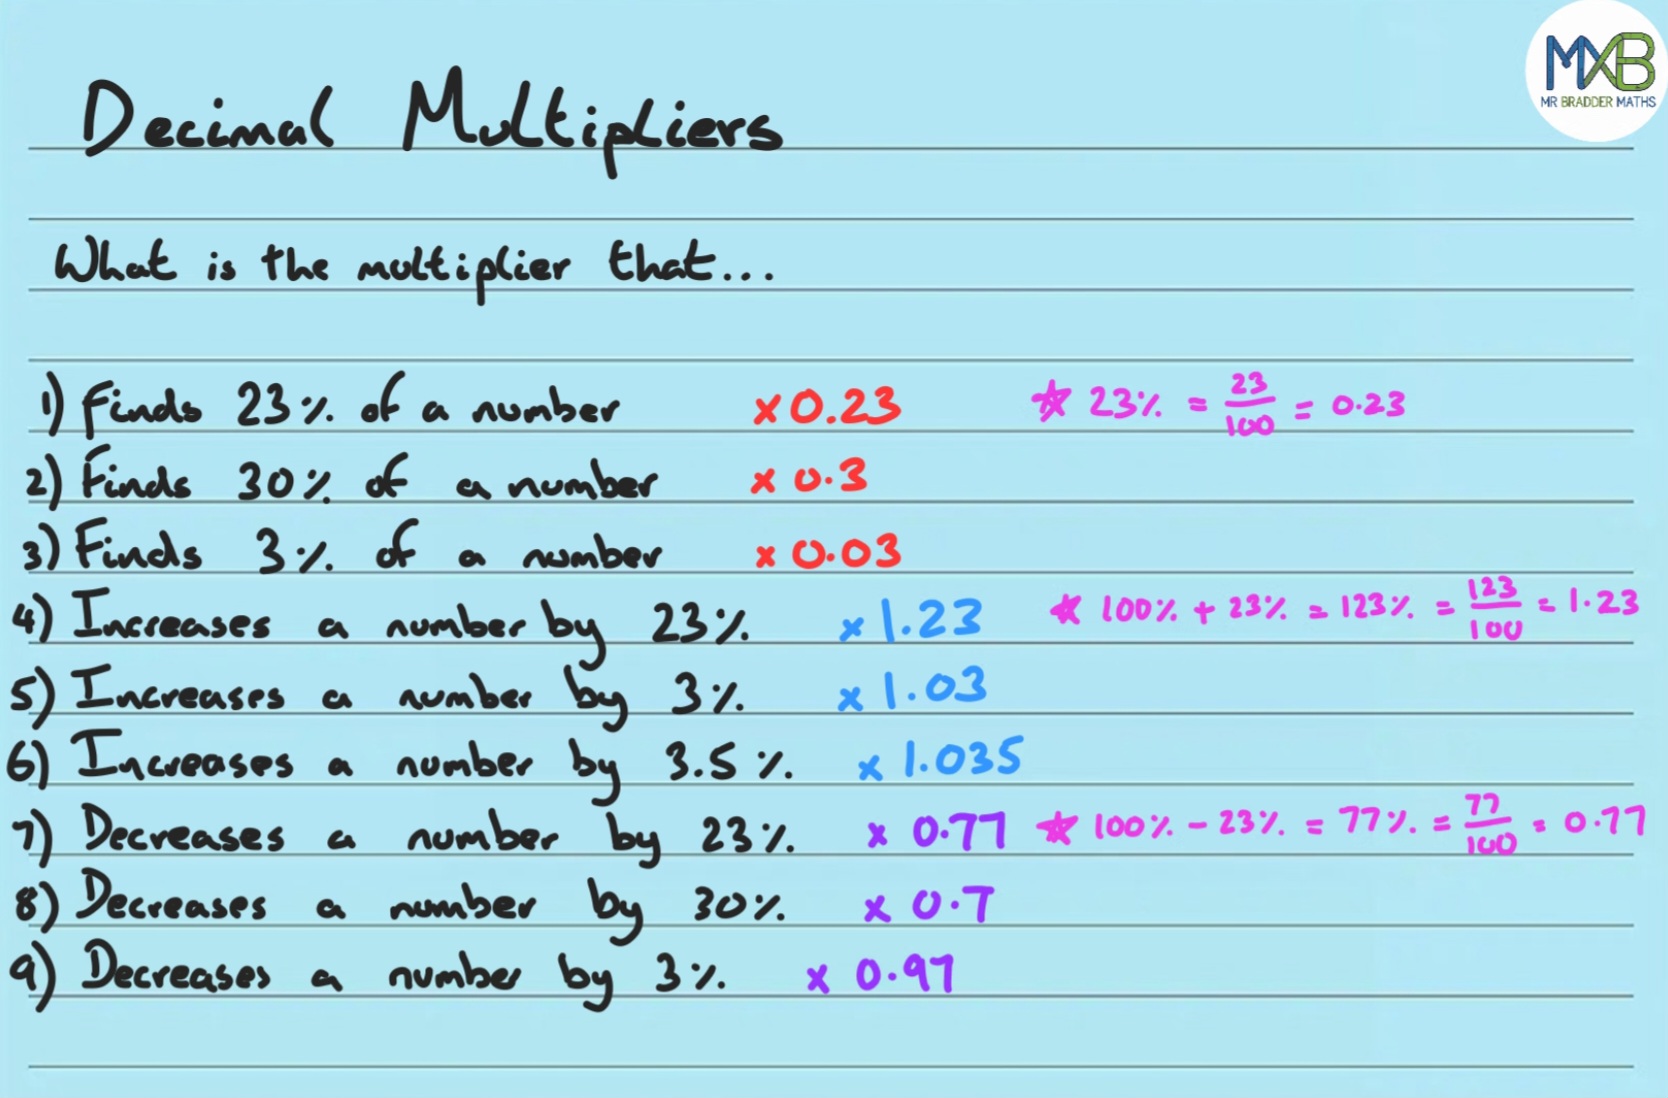 MXB
MR BRADDER MATHS
Decimal Multipliers
What is the multiplier that...
1) Finds 23% of a number ×0.23 ☆ 23% = 23/100 = 0.23
2) Finds 30% of a number × 0.3
3) Finds 3% of a number × 0.03
4) Increases a number by 23% × 1.23 ☆ 100% + 23% = 123% = 123/100 = 1.23
5) Increases a number by 3% × 1.03
6) Increases a number by 3.5% × 1.035
7) Decreases a number by 23% × 0.77 ☆ 100% - 23% = 77% = 77/100 = 0.77
8) Decreases a number by 30% × 0.7
9) Decreases a number by 3% × 0.97